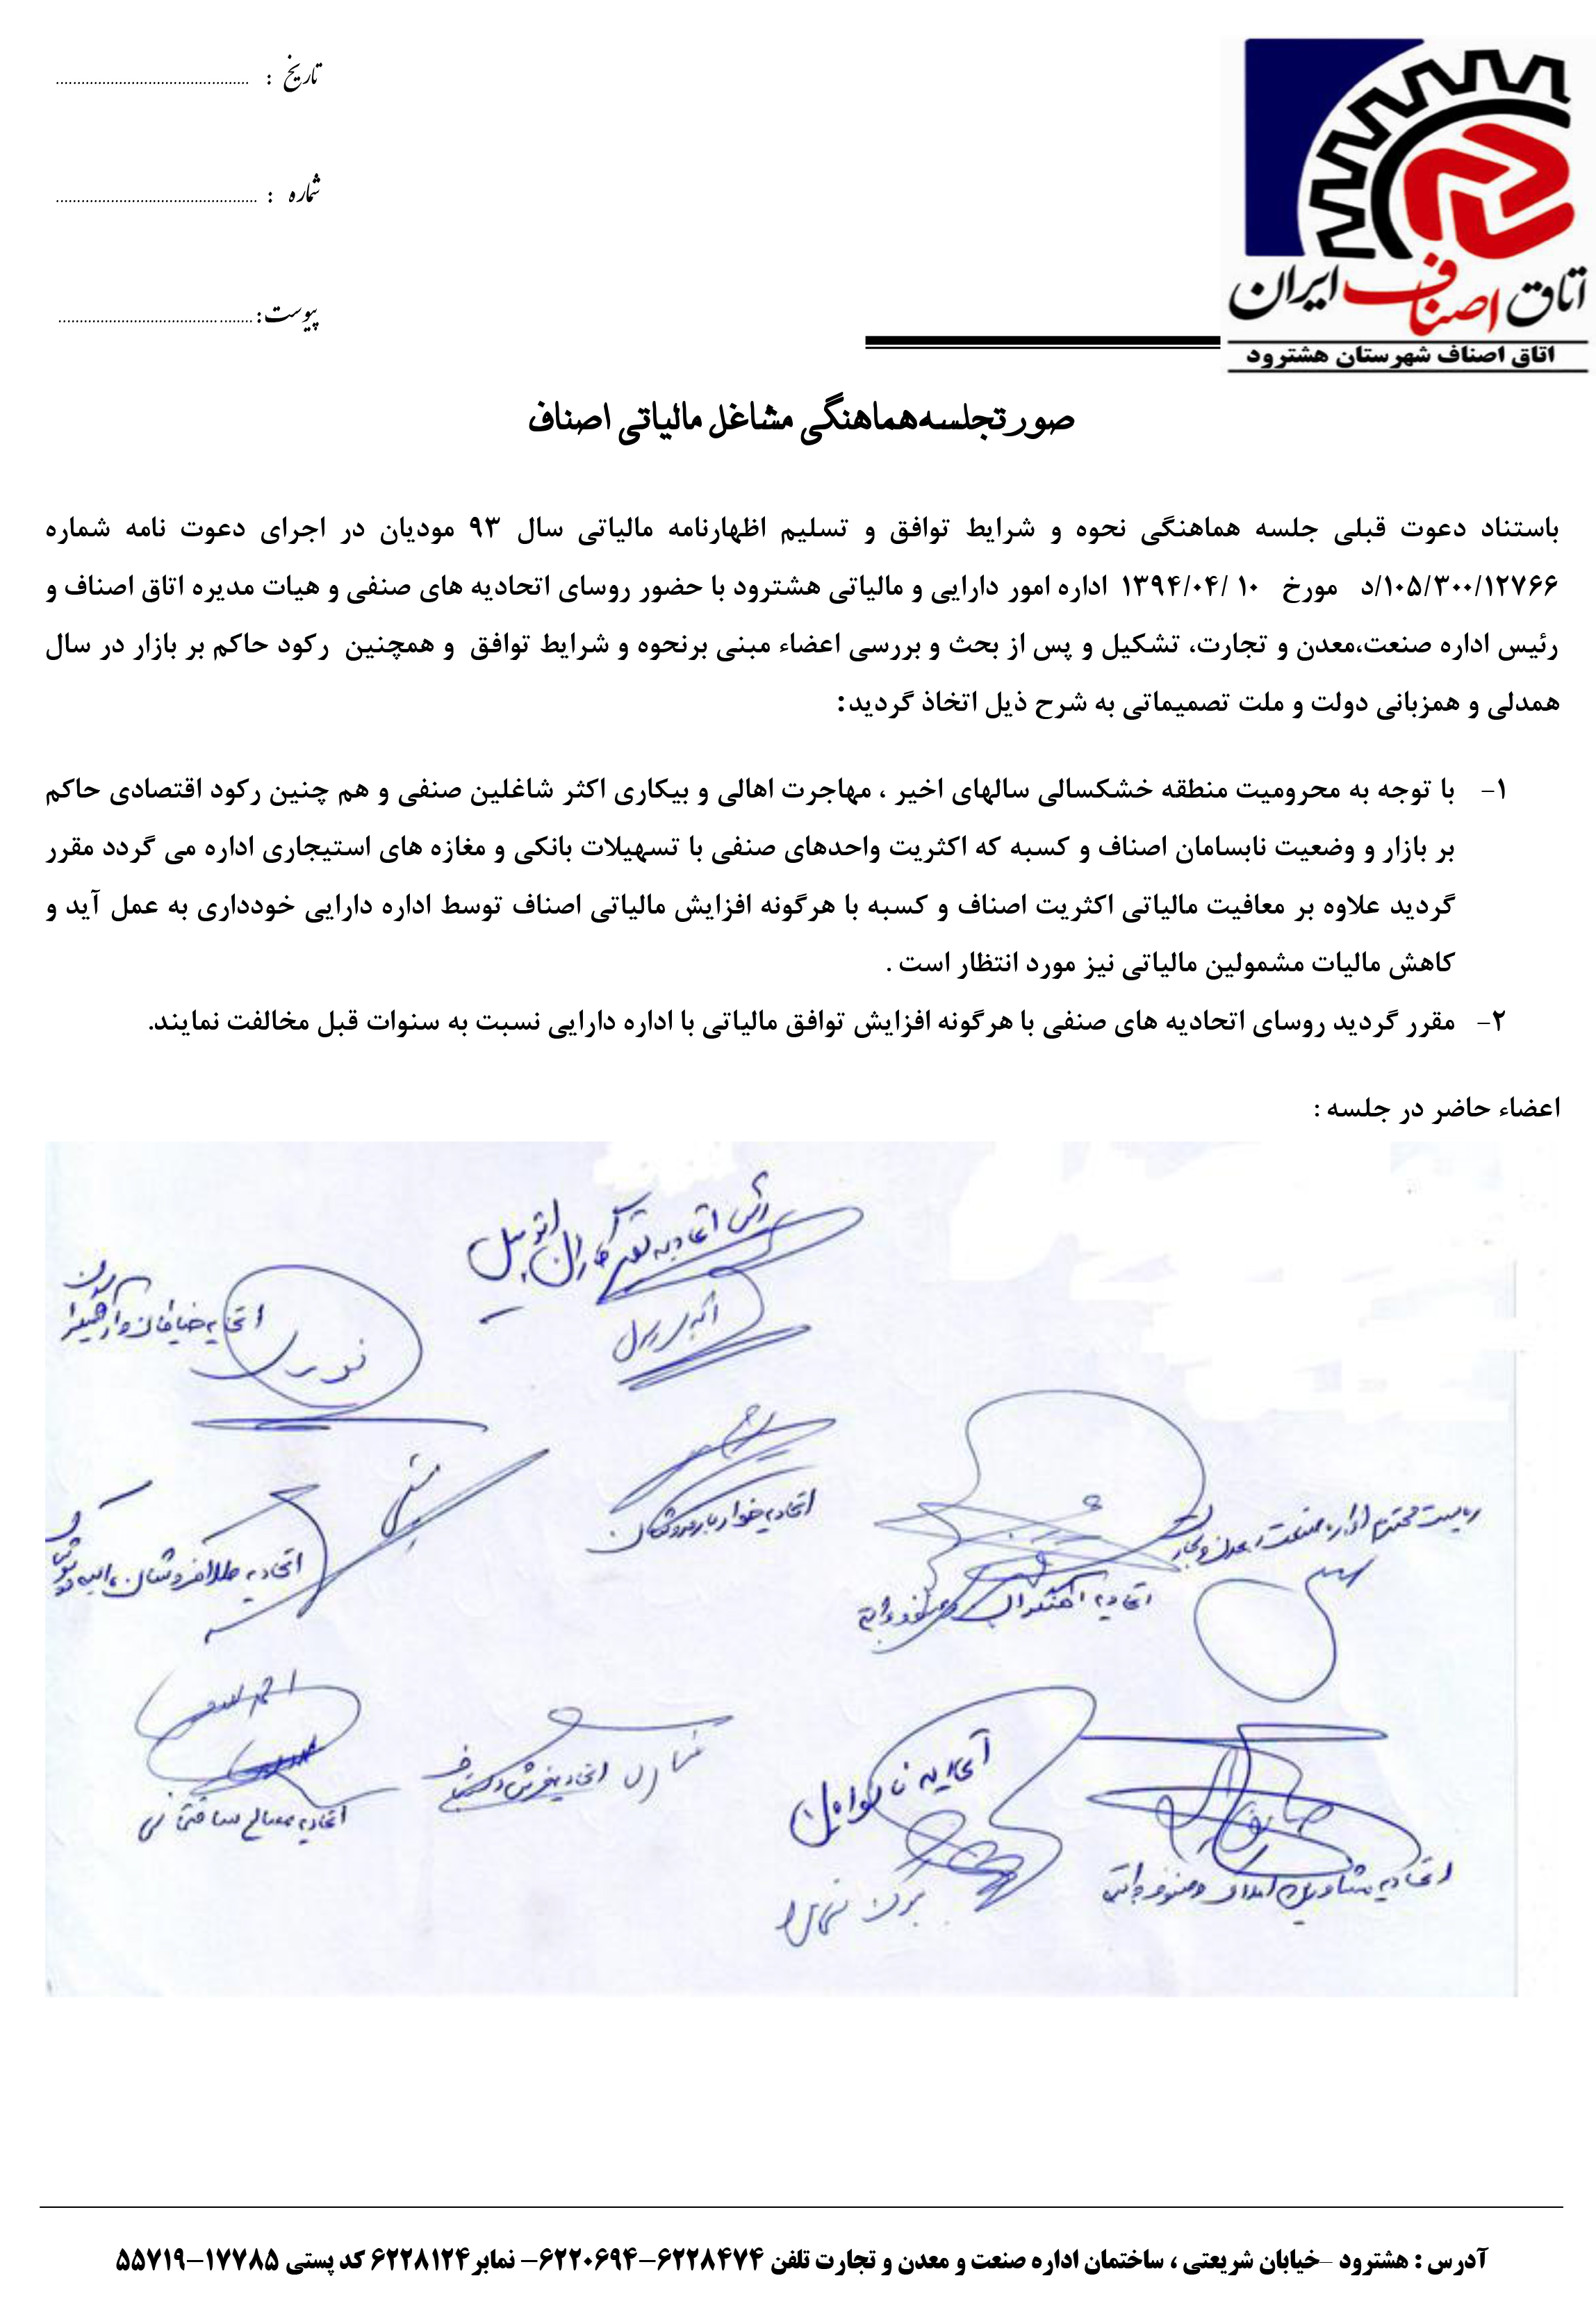 تاریخ : ..............................................
شماره : ................................................
پیوست: ...............................................
اتاق اصناف ایران
اتاق اصناف شهرستان هشترود
صورتجلسه هماهنگی مشاغل مالیاتی اصناف
باستناد دعوت قبلی جلسه هماهنگی نحوه و شرایط توافق و تسلیم اظهارنامه مالیاتی سال ۹۳ مودیان در اجرای دعوت نامه شماره
۱۰۵/۳۰۰/۱۲۷۶۶/د مورخ ۱۰ /۱۳۹۴/۰۴ اداره امور دارایی و مالیاتی هشترود با حضور روسای اتحادیه های صنفی و هیات مدیره اتاق اصناف و
رئیس اداره صنعت،معدن و تجارت، تشکیل و پس از بحث و بررسی اعضاء مبنی برنحوه و شرایط توافق و همچنین رکود حاکم بر بازار در سال
همدلی و همزبانی دولت و ملت تصمیماتی به شرح ذیل اتخاذ گردید:
۱- با توجه به محرومیت منطقه خشکسالی سالهای اخیر ، مهاجرت اهالی و بیکاری اکثر شاغلین صنفی و هم چنین رکود اقتصادی حاکم
بر بازار و وضعیت نابسامان اصناف و کسبه که اکثریت واحدهای صنفی با تسهیلات بانکی و مغازه های استیجاری اداره می گردد مقرر
گردید علاوه بر معافیت مالیاتی اکثریت اصناف و کسبه با هرگونه افزایش مالیاتی اصناف توسط اداره دارایی خودداری به عمل آید و
کاهش مالیات مشمولین مالیاتی نیز مورد انتظار است .
۲- مقرر گردید روسای اتحادیه های صنفی با هرگونه افزایش توافق مالیاتی با اداره دارایی نسبت به سنوات قبل مخالفت نمایند.
اعضاء حاضر در جلسه :
رئیس اتحادیه تعمیرکاران اتومبیل
اتحادیه خیاطان و آرایشگران
اتحادیه خواربارفروشان
ریاست محترم اداره صنعت، معدن و تجارت
اتحادیه طلافروشان
اتحادیه آهنگران و صنوف وابسته
اتحادیه نانوایان
اتحادیه فرش دستباف
اتحادیه مصالح ساختمانی
اتحادیه مشاورین املاک و صنوف وابسته
آدرس : هشترود –خیابان شریعتی ، ساختمان اداره صنعت و معدن و تجارت تلفن ۶۲۲۸۴۷۴–۶۲۲۰۶۹۴– نمابر۶۲۲۸۱۲۴ کد پستی ۱۷۷۸۵–۵۵۷۱۹